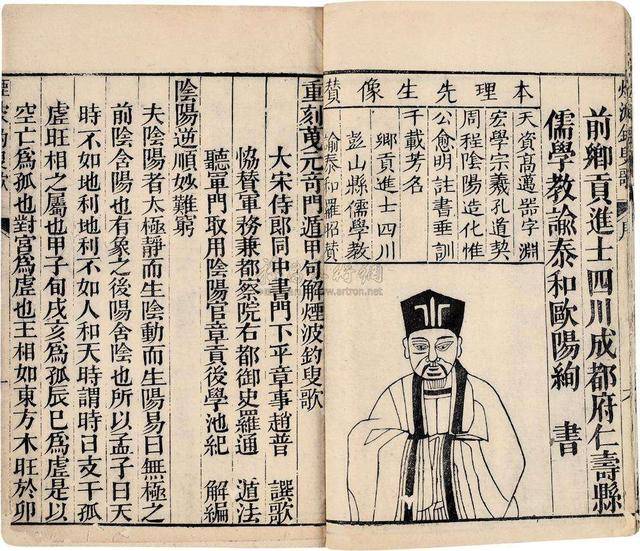 前鄉貢進士四川成都府仁壽縣
儒學教諭泰和歐陽絢 書
本理先生像贊
天資高邁器字淵
宏學宗羲孔道契
周程陰陽造化惟
公愈明註書垂訓
千載芳名
鄉貢進士四川
彭山縣儒學教
諭泰和羅昭贊
重刻元奇門遁甲句解煙波釣叟歌
大宋侍郎同中書門下平章事趙普 譔歌
協贊軍務兼都察院右都御史羅通 遁法
聽軍門取用陰陽官章貢後學池紀 解編
陰陽逆順妙難窮
夫陰陽者太極靜而生陰動而生陽易曰無極之
前陰含陽也有象之後陽含陰也所以孟子曰天
時不如地利地利不如人和天時謂時日支干孤
虛旺相之屬也甲子旬戌亥爲孤辰巳爲虛是以
空亡爲孤也對宮爲虛也王相如東方木旺於卯
www.artron.net